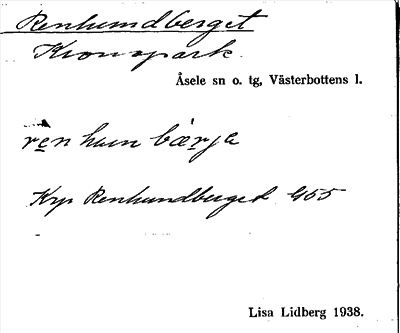 Renhundberget
Kronopark.
Åsele sn o. tg, Västerbottens l.
ren hun bærje
Krp Renhundberget G55
Lisa Lidberg 1938.